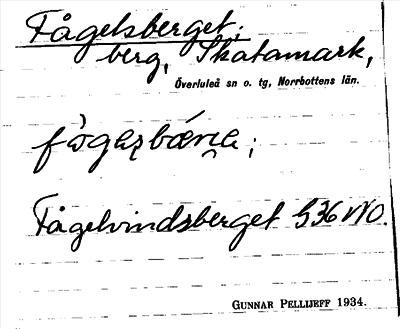 Fågelsberget;
berg, Skatamark,
Överluleå sn o. tg, Norrbottens län.
Fågelvindsberget 536 NO.
GUNNAR PELLIJEFF 1934.